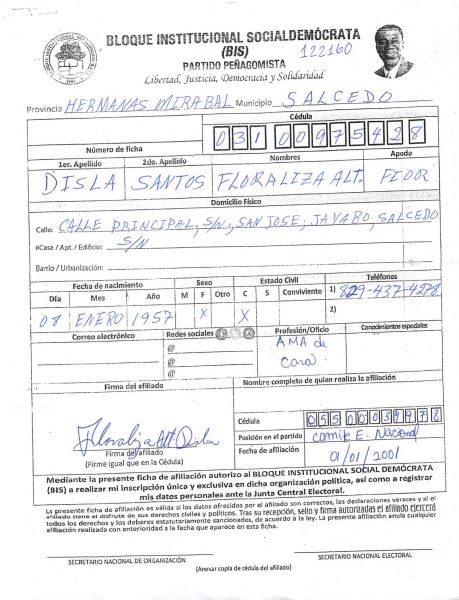 BLOQUE INSTITUCIONAL SOCIALDEMÓCRATA
(BIS) 122160
PARTIDO PEÑAGOMISTA
Libertad, Justicia, Democracia y Solidaridad
Provincia HERMANAS MIRABAL Municipio SALCEDO
Cédula
Número de ficha 031 0097542 8
1er. Apellido 2do. Apellido Nombres Apodo
DISLA SANTOS FLORALIZA ALT. FIOR
Domicilio Físico
Calle: CALLE PRINCIPAL, S/N, SAN JOSE, JAYABO, SALCEDO
#Casa / Apt. / Edificio: S/N
Barrio / Urbanización:
Fecha de nacimiento Sexo Estado Civil Teléfonos
Día Mes Año M F Otro C S Conviviente 1) 829-437-4278
08 ENERO 1957 X X 2)
Correo electrónico Redes sociales Profesión/Oficio Conocimientos especiales
@ AMA de
@ casa
@
Firma del afiliado Nombre completo de quian realiza la afiliación
Floraliza Alt Disla
Cédula 055 0003997 8
Firma del afiliado Posición en el partido comite E. Nacional
(Firme igual que en la Cédula) Fecha de afiliación 01/01/2001
Mediante la presente ficha de afiliación autorizo al BLOQUE INSTITUCIONAL SOCIAL DEMÓCRATA
(BIS) a realizar mi inscripción única y exclusiva en dicha organización política, así como a registrar
mis datos personales ante la Junta Central Electoral.
La presente ficha de afiliación es válida si los datos ofrecidos por el afiliado son correctos, las declaraciones veraces y si el
afiliado tiene el disfrute de sus derechos civiles y políticos. Tras su recepción, sello y firma autorizadas el afiliado ejercerá
todos los derechos y los deberes estatutariamente sancionados, de acuerdo a la ley. La presente afiliación anula cualquier
afiliación realizada con anterioridad a la fecha que aparece en esta ficha.
SECRETARIO NACIONAL DE ORGANIZACIÓN SECRETARIO NACIONAL ELECTORAL
(Anexar copia de cédula del afiliado)